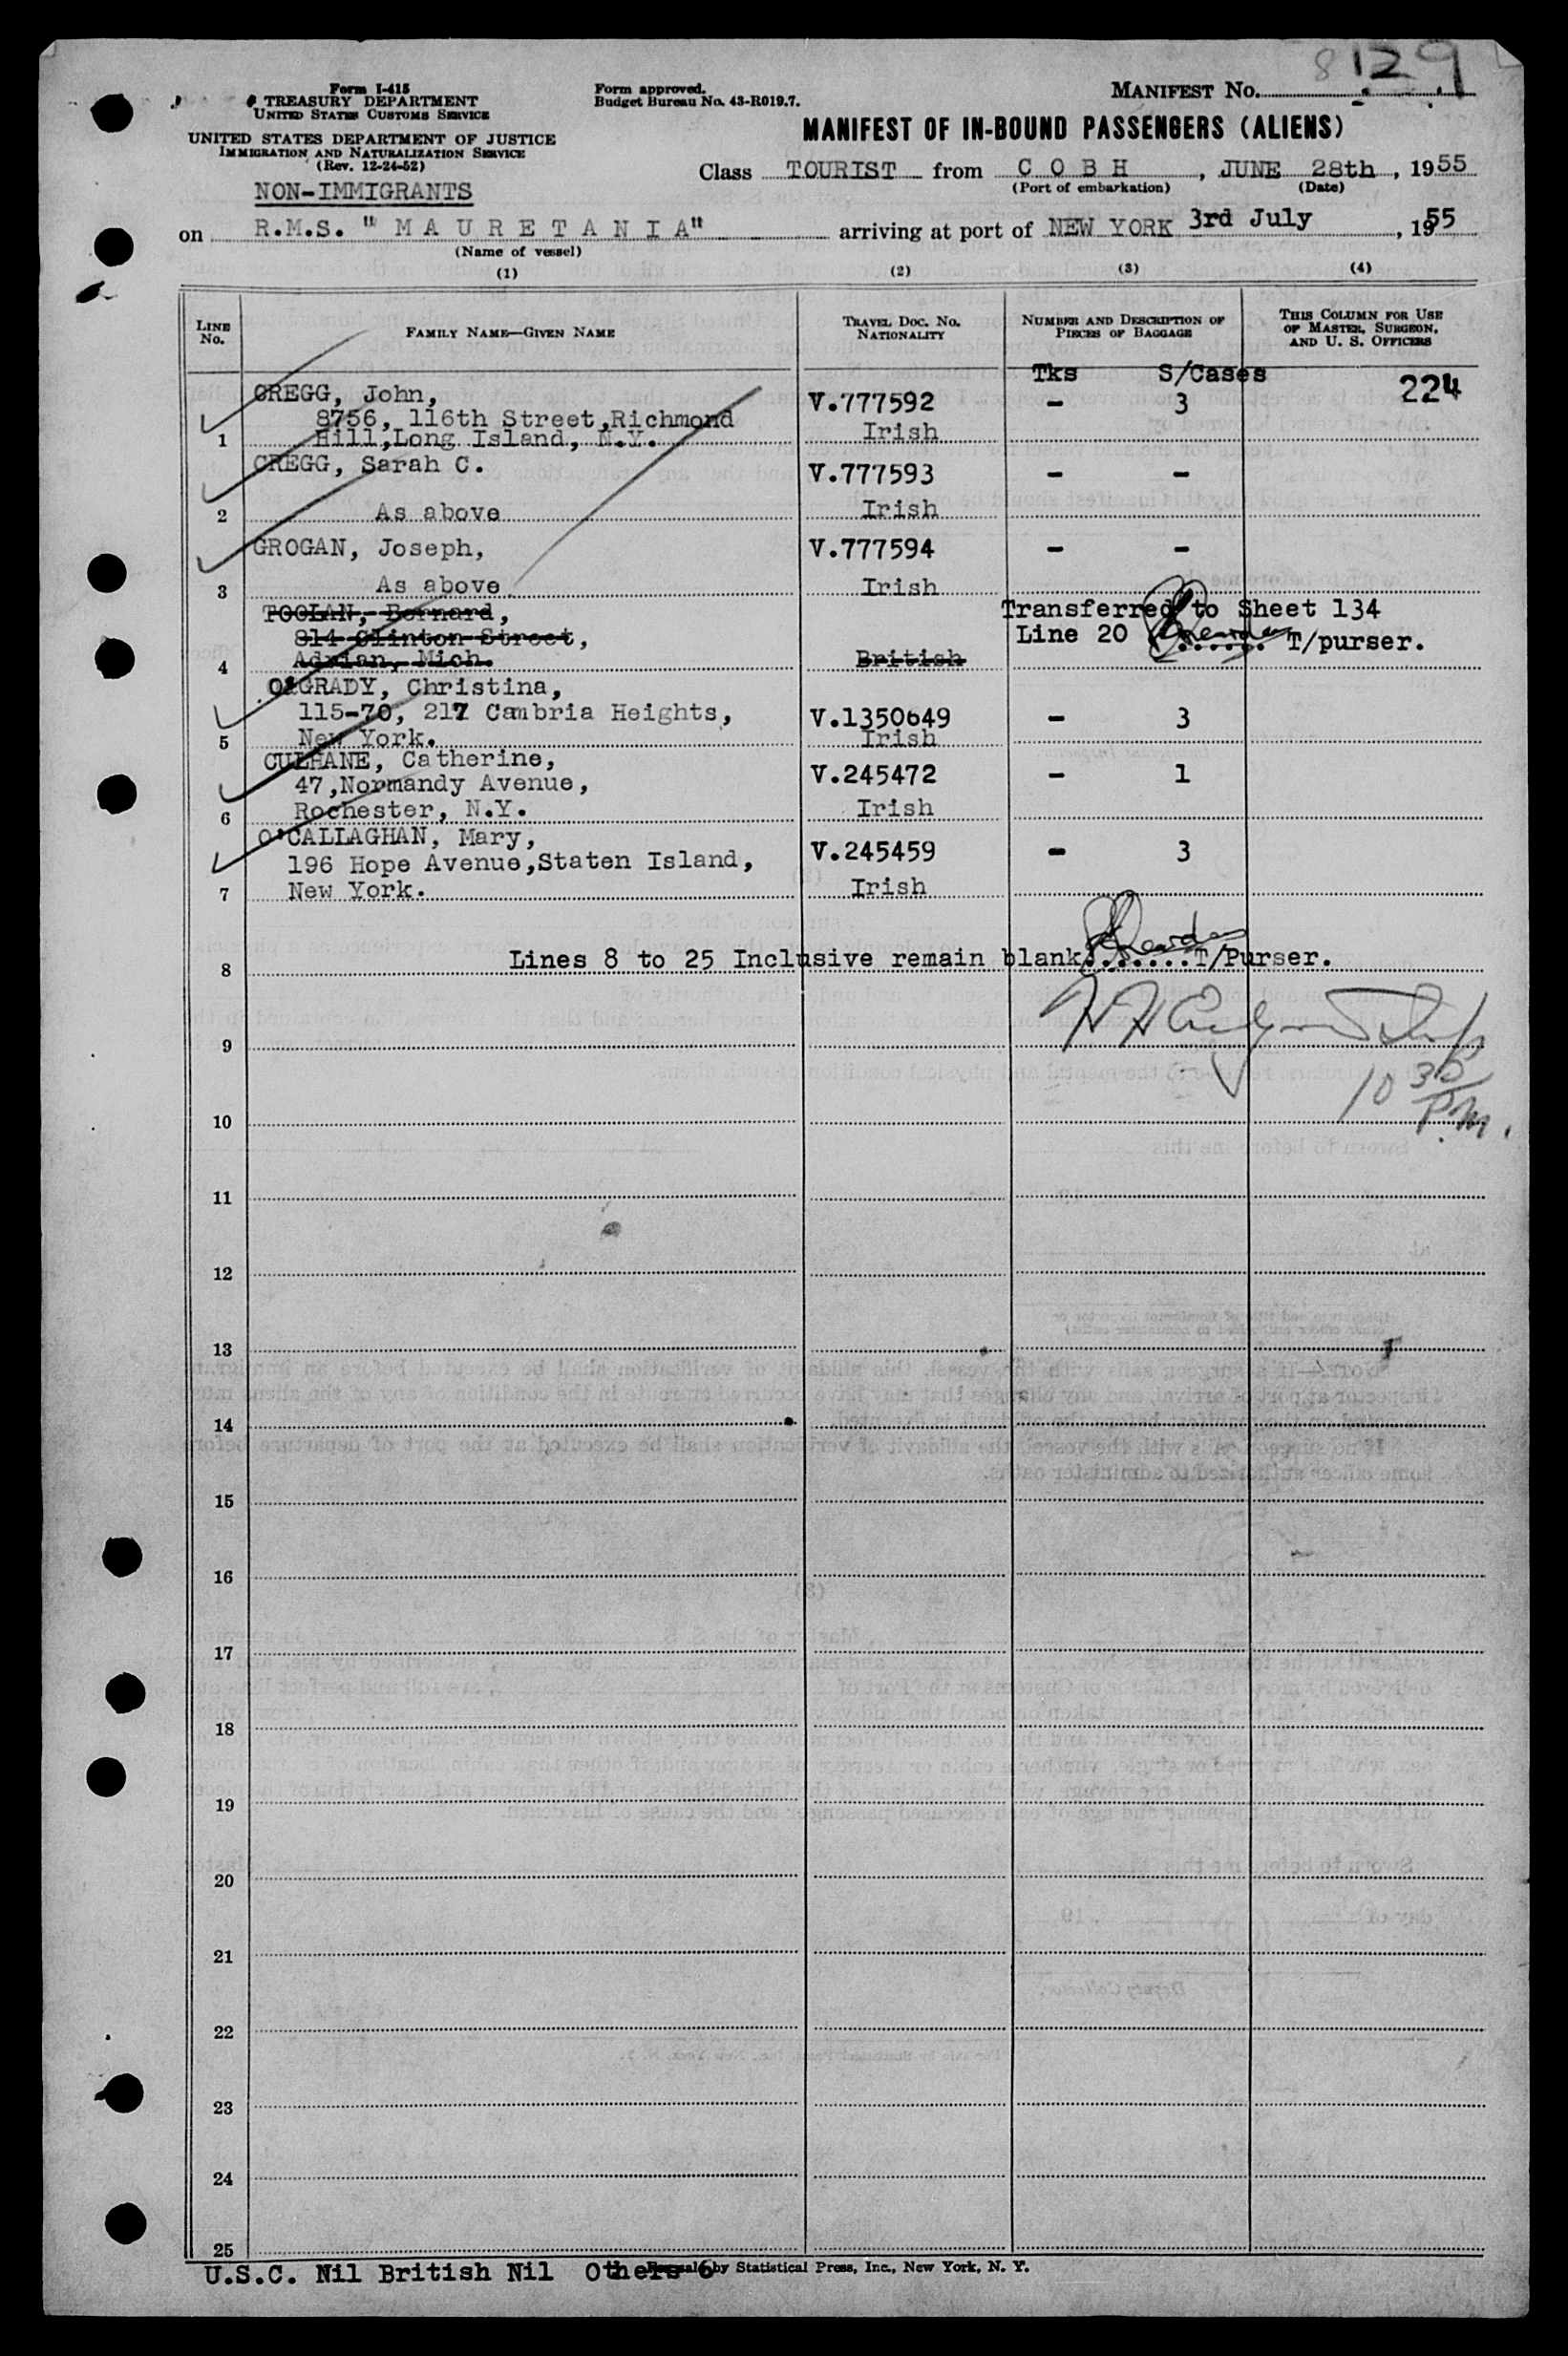 8129
Form I-415
TREASURY DEPARTMENT
UNITED STATES CUSTOMS SERVICE
Form approved.
Budget Bureau No. 43-R019.7.
MANIFEST No.
UNITED STATES DEPARTMENT OF JUSTICE
IMMIGRATION AND NATURALIZATION SERVICE
(Rev. 12-24-52)
MANIFEST OF IN-BOUND PASSENGERS (ALIENS)
Class TOURIST from C O B H, JUNE 28th, 1955
(Port of embarkation) (Date)
NON-IMMIGRANTS
on R.M.S. " M A U R E T A N I A" arriving at port of NEW YORK 3rd July, 1955
(Name of vessel)
(1) (2) (3) (4)
LINE No. FAMILY NAME—GIVEN NAME TRAVEL DOC. No. NATIONALITY NUMBER AND DESCRIPTION OF PIECES OF BAGGAGE THIS COLUMN FOR USE OF MASTER, SURGEON, AND U. S. OFFICERS
Tks S/Cases
224
GREGG, John, V.777592 - 3
8756, 116th Street,Richmond
1 Hill,Long Island, N.Y. Irish
GREGG, Sarah C. V.777593 - -
2 As above Irish
GROGAN, Joseph, V.777594 - -
3 As above Irish
TOOLAN, Bernard, Transferred to Sheet 134
814 Clinton Street, Line 20 ...... T/purser.
4 Adrian, Mich. British
O'GRADY, Christina,
115-70, 217 Cambria Heights, V.1350649 - 3
5 New York. Irish
CULHANE, Catherine,
47,Normandy Avenue, V.245472 - 1
6 Rochester, N.Y. Irish
O'CALLAGHAN, Mary,
196 Hope Avenue,Staten Island, V.245459 - 3
7 New York. Irish
8 Lines 8 to 25 Inclusive remain blank.......T/Purser.
9
10 30
P.M.
10
11
12
13
14
15
16
17
18
19
20
21
22
23
24
25
U.S.C. Nil British Nil Others 6 by Statistical Press, Inc., New York, N. Y.